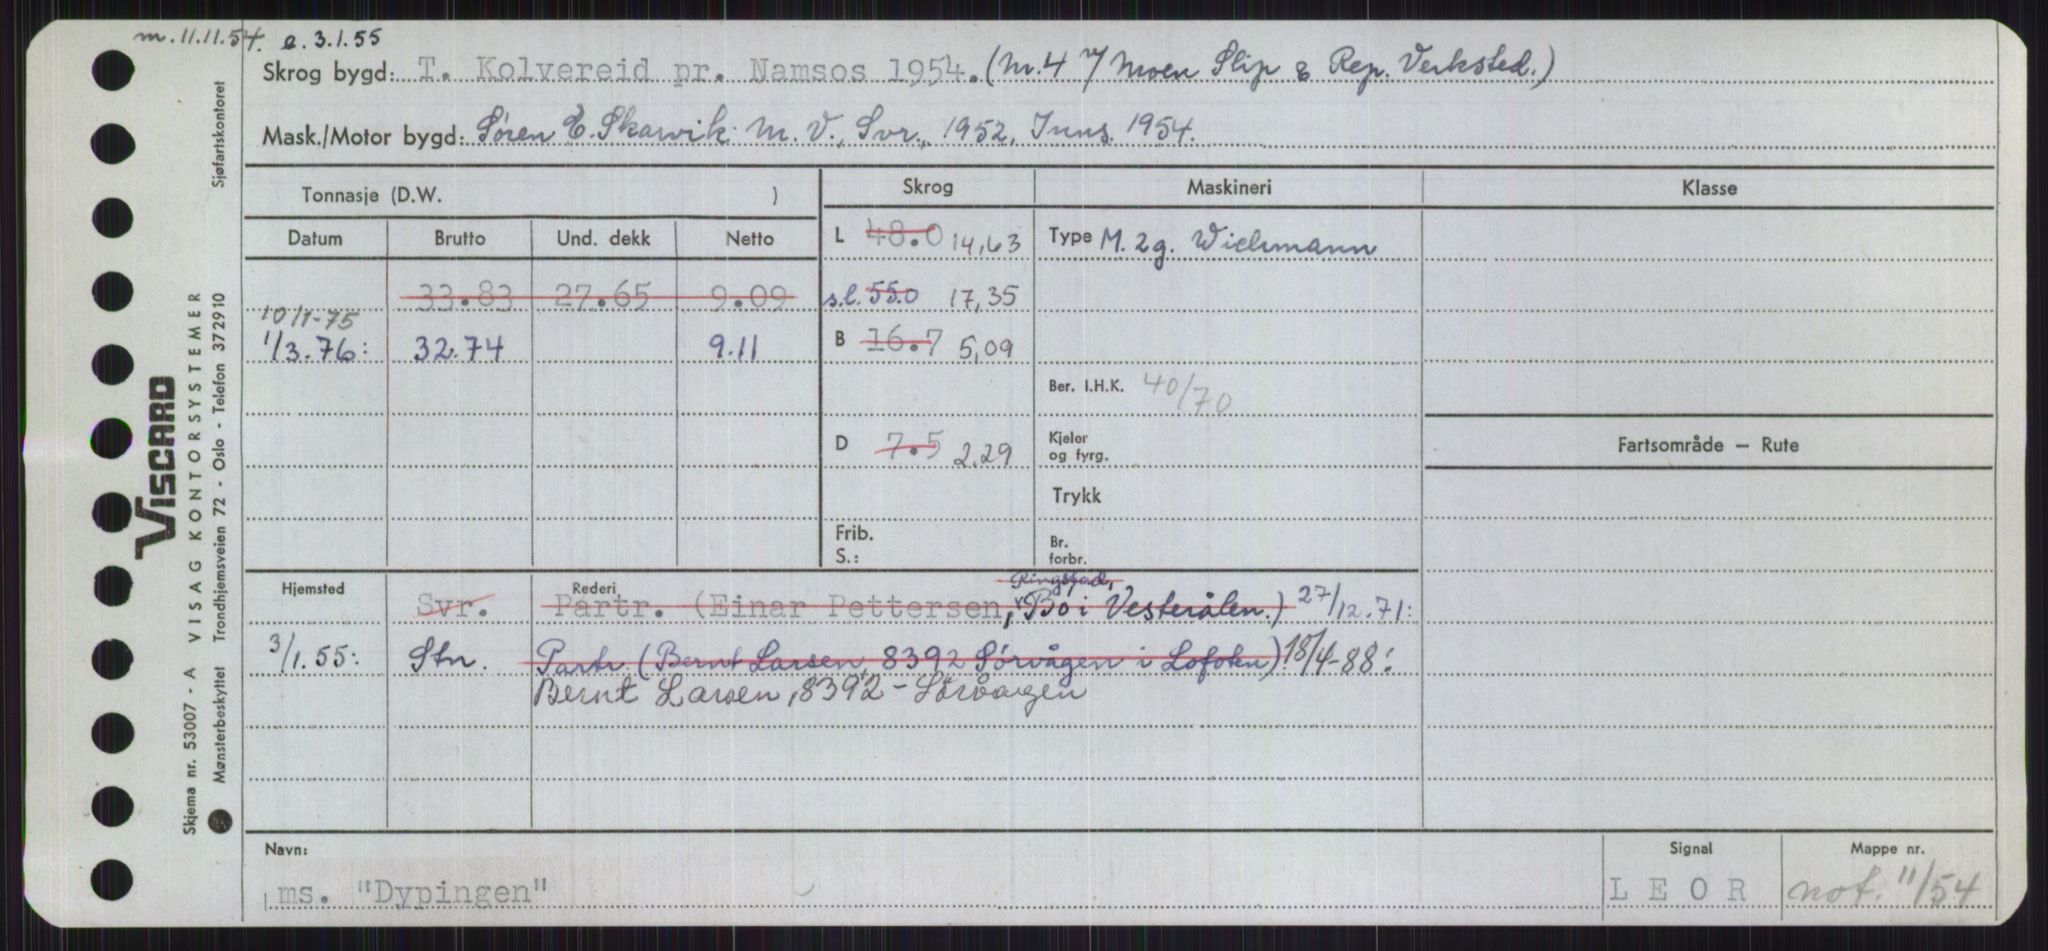 m. 11.11.54. e. 3.1.55
Skrog bygd: T. Kolvereid pr. Namsos 1954. (Nr. 4 v/ Moen Slip & Rep. Verksted.)
Mask./Motor bygd: Søren E. Skarvik M. V., Svr., 1952, Inns. 1954.
Tonnasje (D.W. ) Skrog Maskineri Klasse
Datum Brutto Und. dekk Netto L 48.0 14,63 Type M. 2g. Wichmann
33.83 27.65 9.09 s.l. 55.0 17,35
10/1-75
1/3.76: 32.74 9.11 B 16.7 5,09
Ber. I.H.K. 40/70
D 7.5 2.29 Kjeler og fyrg. Fartsområde — Rute
Trykk
Frib. S.: Br. forbr.
Hjemsted Rederi Ringstad,
Svr. Partr. (Einar Pettersen, Bo i Vesterålen.) 27/12.71:
3/1.55: Stn. Partr. (Bernt Larsen, 8392 Sörvågen i Lofoten) 18/4-88:
Bernt Larsen, 8392 - Sörvågen
Navn: Signal Mappe nr.
ms. "Dypingen" L E O R not. 11/54
VISCARD
VISAG KONTORSYSTEMER
Skjema nr. 53007 - A
Mønsterbeskyttet Trondhjemsveien 72 - Oslo - Telefon 372910 Sjøfartskontoret